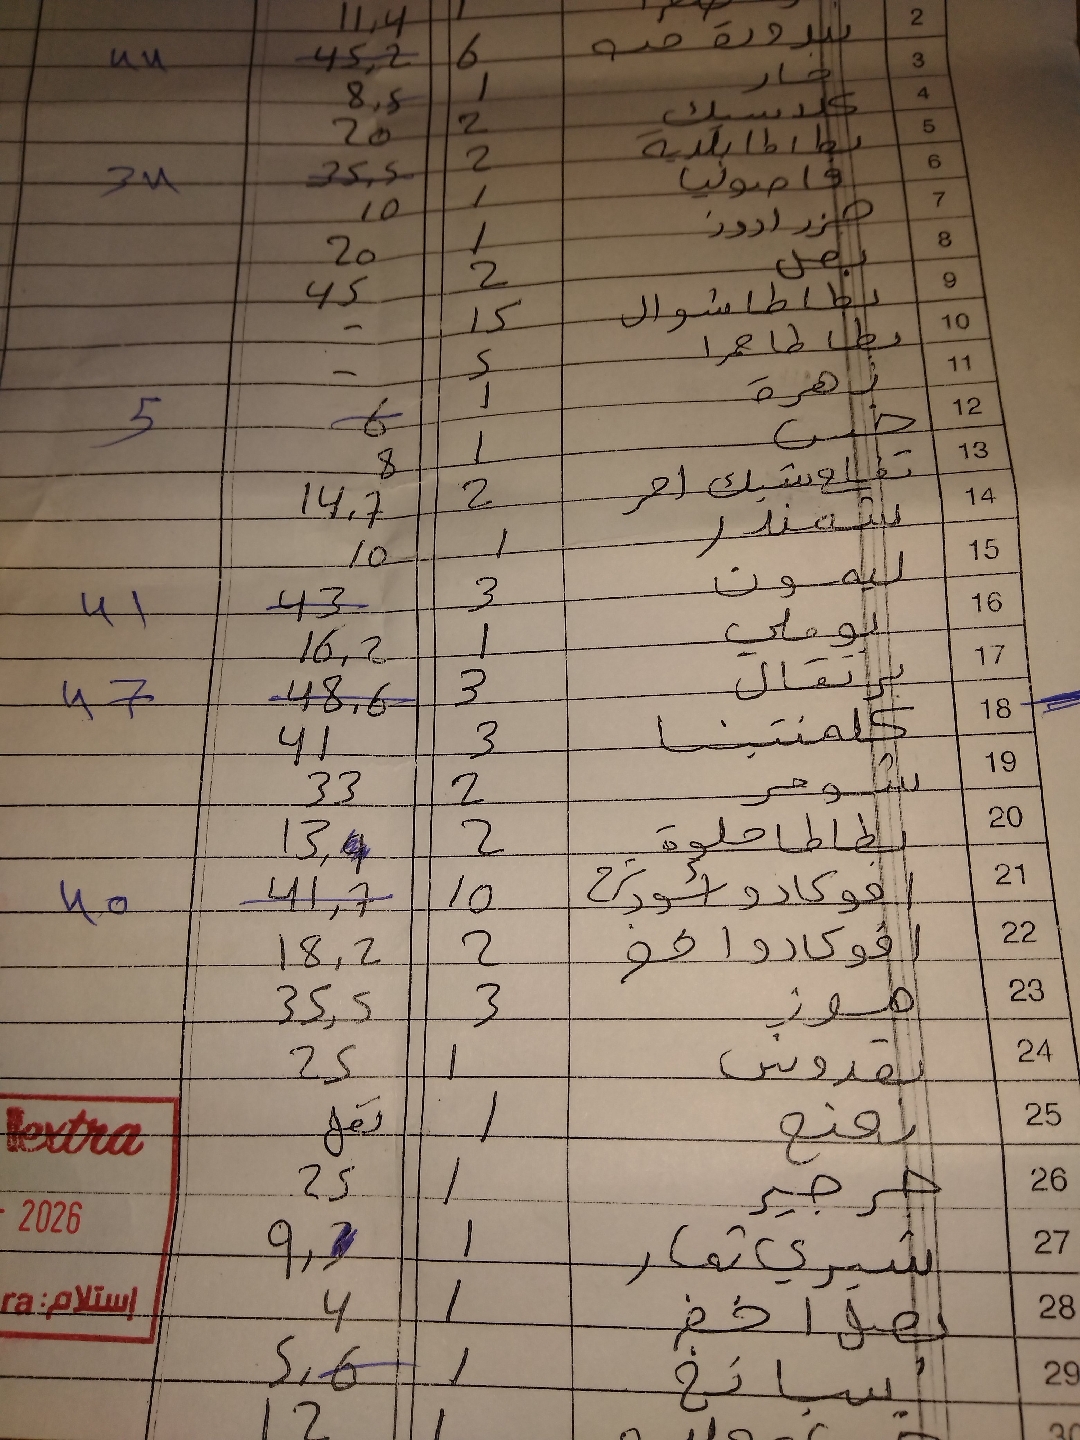 11,4 1 2
44 45,2 6 بندورة حبه 3
8,5 1 خيار 4
20 2 كلاسيك 5
2 بطاطا بلدية 6
34 35,5 1 فاصوليا 7
10 1 جزر ادوز 8
20 2 بصل 9
45 15 بطاطا شوال 10
- 5 بطاطا حمرا 11
- 1 زهرة 12
5 6 1 خس 13
8 2 تفاح ستيك احمر 14
14,7 شمندر
10 1 ليمون 15
41 43 3 16
16,2 1 بوملي 17
47 48,6 3 برتقال 18
41 3 كلمنتينا 19
33 2 شومر 20
13,4 2 بطاطا حلوة 21
40 41,7 10 افوكادو 22
18,2 2 افوكادو اخضر 23
35,5 3 موز 24
25 1 بقدونس 25
نقل 1 نعنع 26
25 1 جرجير 27
9,3 1 شيري تمار 28
4 1 بصل اخضر 29
5,6 1 سبانخ 30
12 1
extra
2026
إستلام: